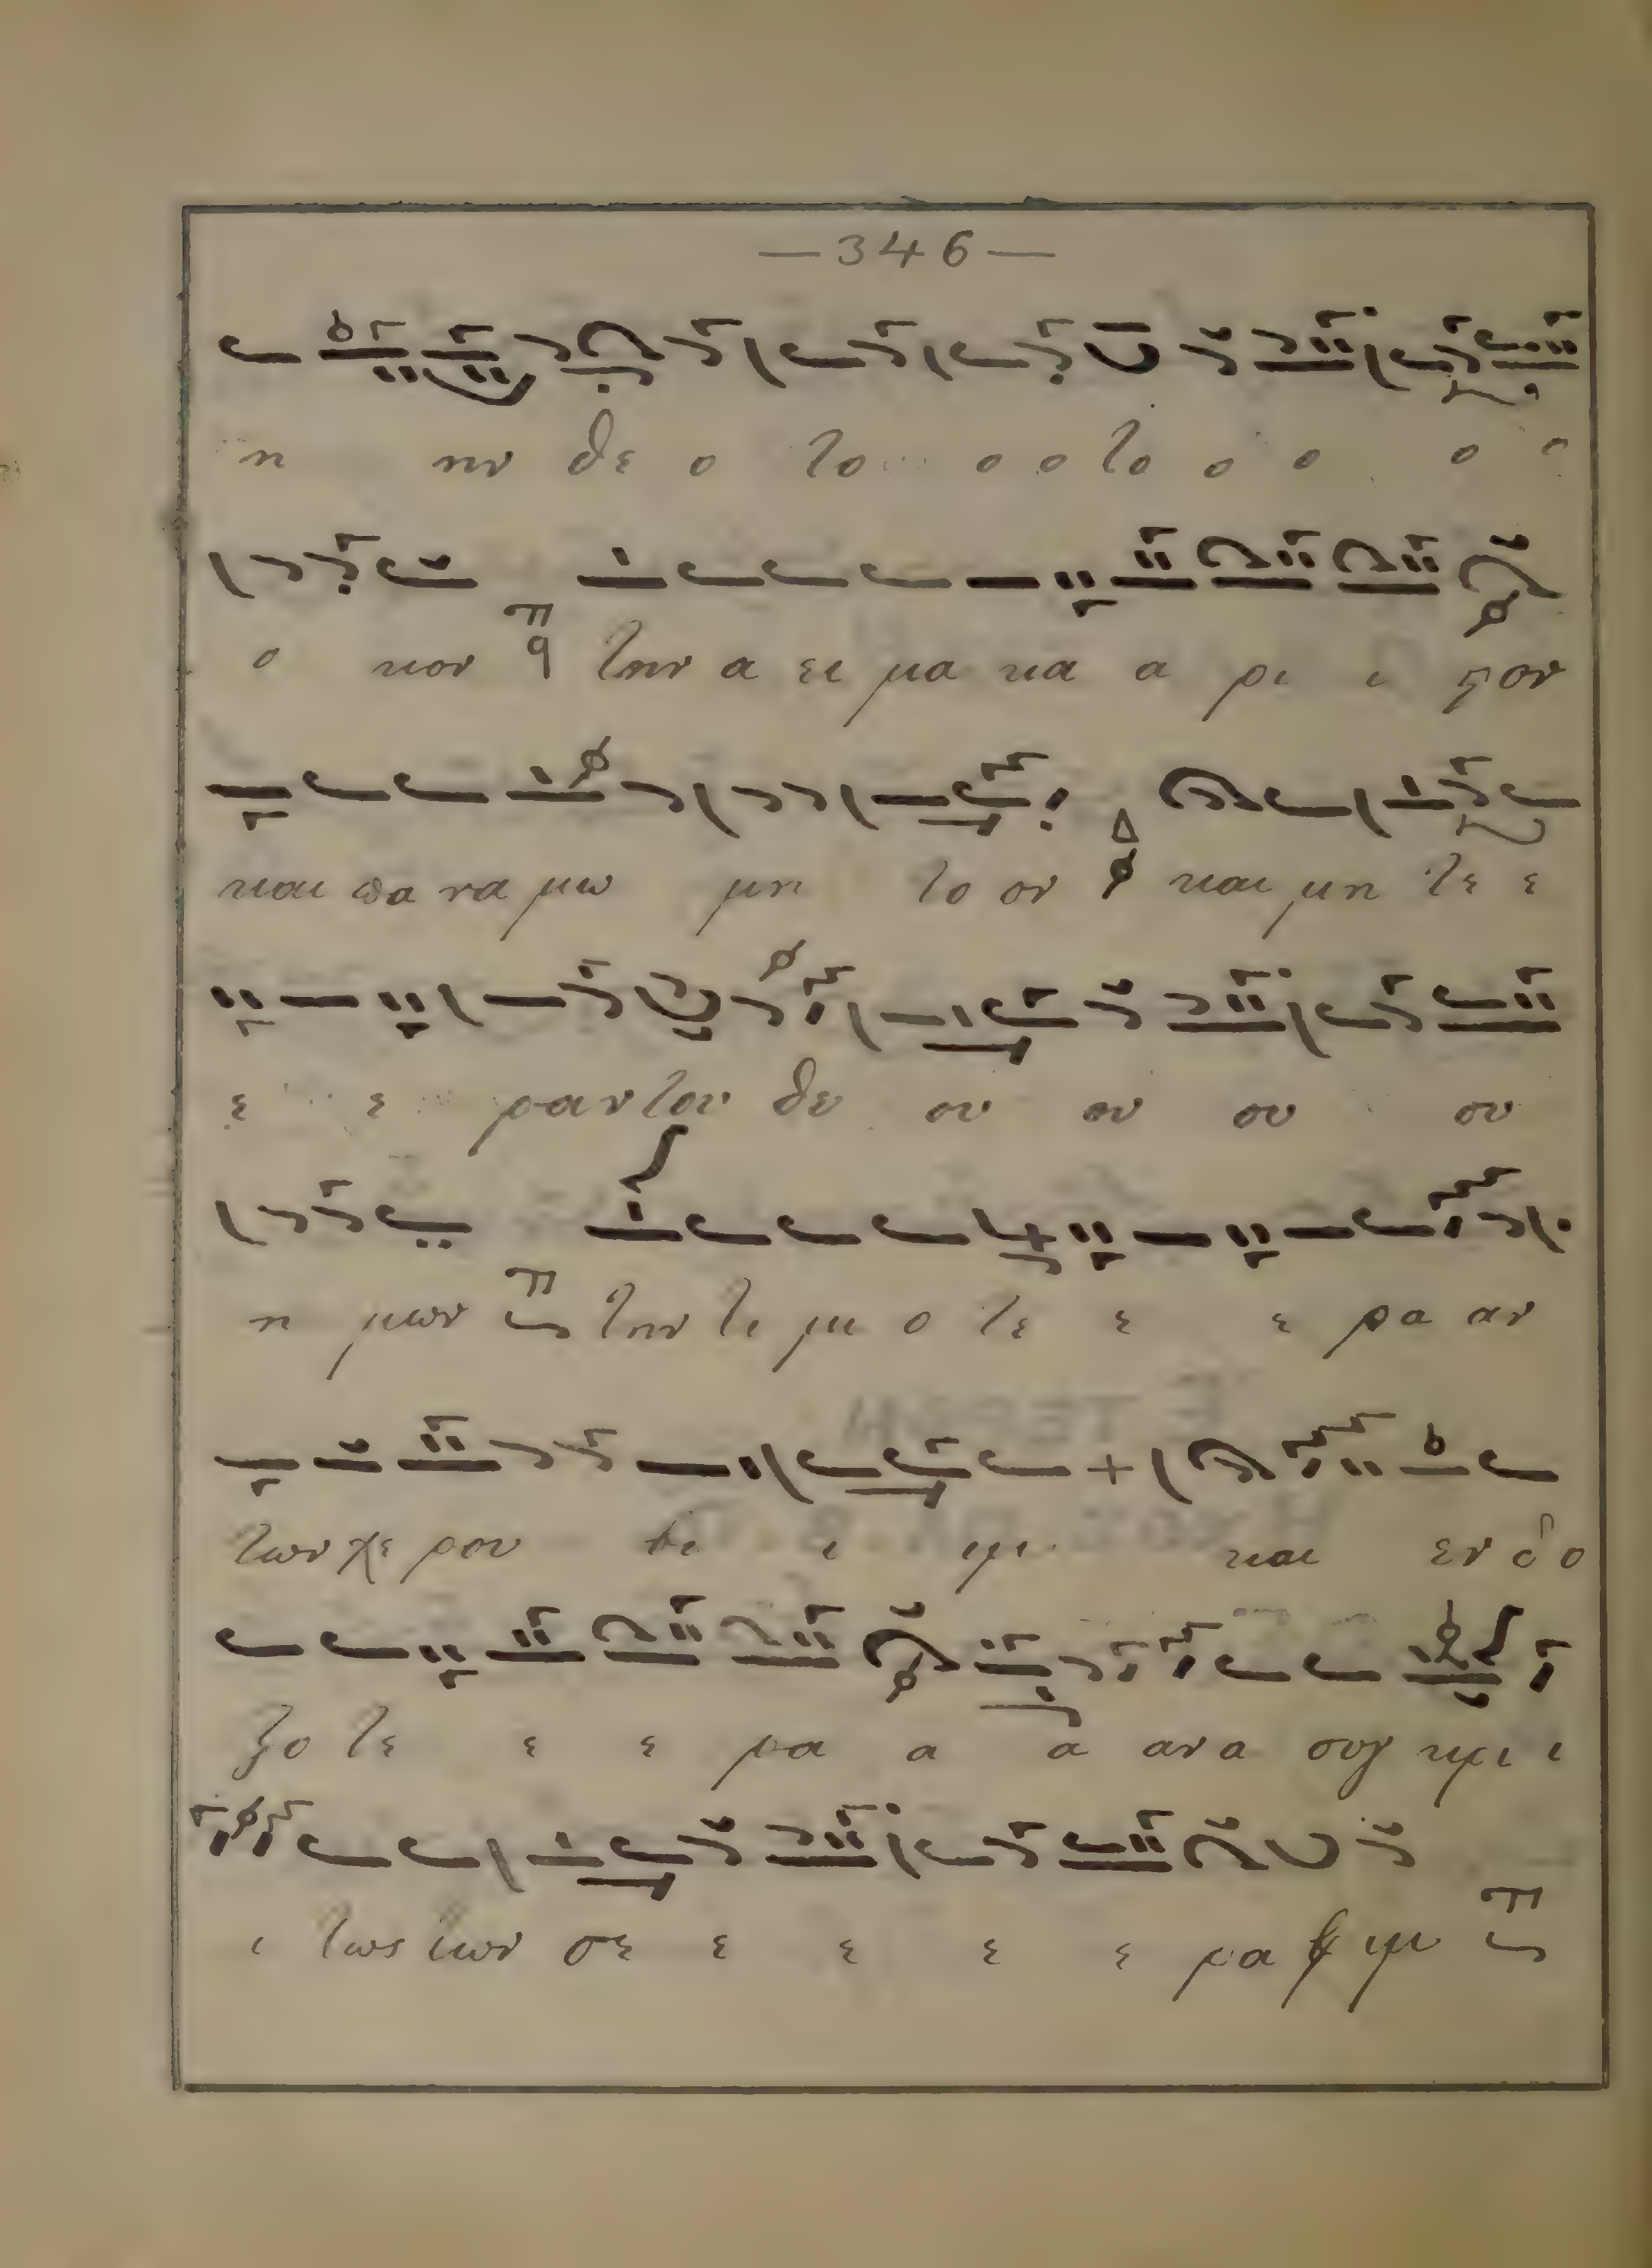 —346—
η ην θε ο το ο ο το ο ο ο ο
ο κον π q την α ει μα κα α ρι ι στον
και πα να μω μη το ον Δ και μη τε ε
ε ε ραν του θυ ου ου ου ου
η μων π την τι μι ο τε ε ε ρα αν
των χε ρου βι ι μι και εν δο ο
ξο τε ε ε ρα α α αν α συγ κρι ι
ι τως των σε ε ε ε ε ρα φ ιμ π